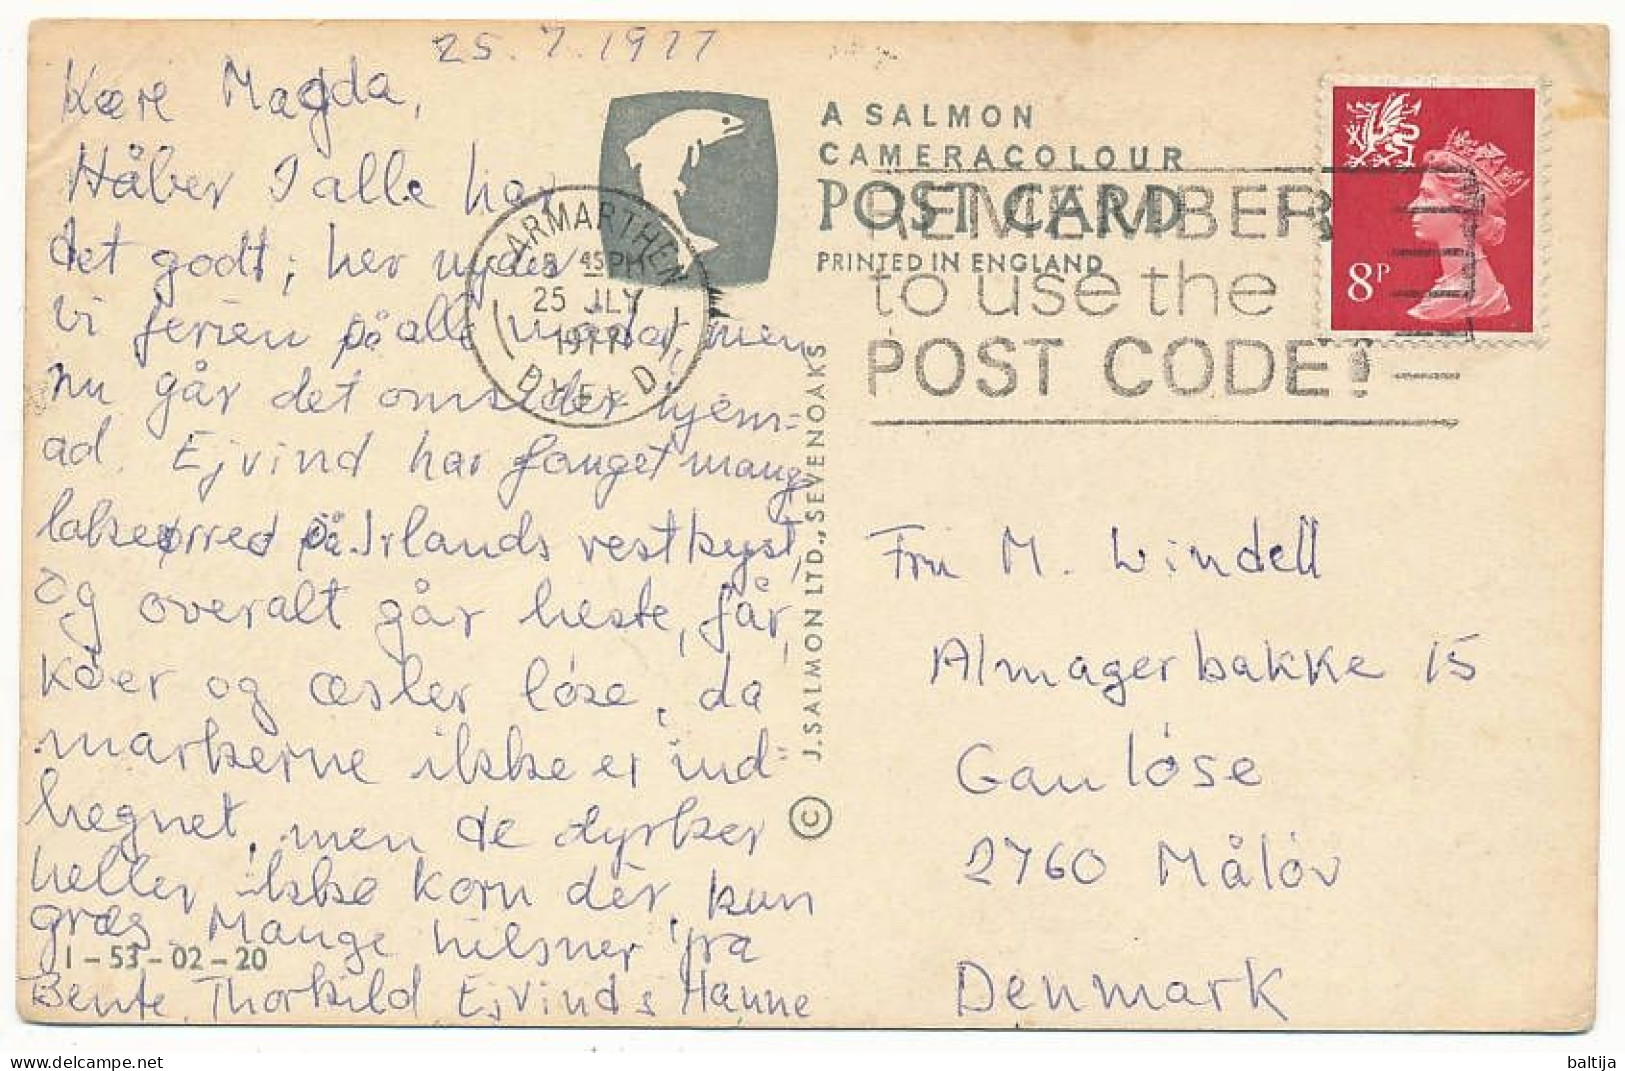 25.7.1977
Kære Magda,
Håber I alle har
det godt; her nyder
vi ferien på alle måder, men
nu går det omsider hjem-
ad. Ejvind har fanget mange
lakseørred på Irlands vestkyst,
og overalt går heste, får,
køer og æsler løse, da
markerne ikke er ind-
hegnet, men de dyrker
heller ikke korn dèr, kun
græs. Mange hilsner fra
Bente, Thorkild Ejvind & Hanne
1-53-02-20
A SALMON
CAMERACOLOUR
POST CARD
PRINTED IN ENGLAND
CARMARTHEN
45 PM
25 JLY
1977
DYFED
REMEMBER
to use the
POST CODE!
8P
© J. SALMON LTD., SEVENOAKS
Fru M. Windell
Almagerbakke 15
Ganløse
2760 Måløv
Denmark
baltija